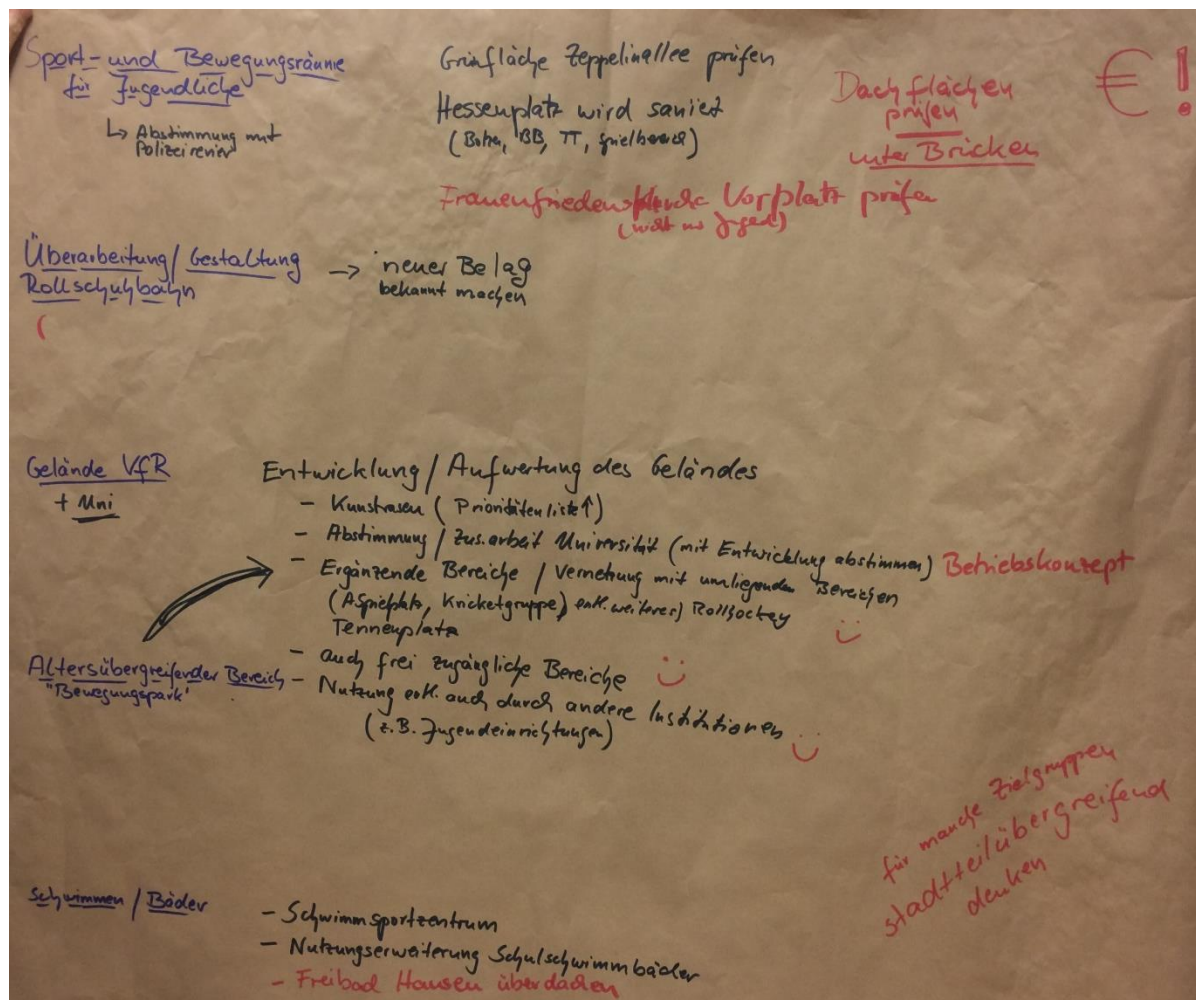 Sport- und Bewegungsräume
für Jugendliche
↳ Abstimmung mit
Polizeirevier
Grünfläche Zeppelinallee prüfen
Hessenplatz wird saniert
(Bolzen, BB, TT, Spielbereich)
Frauenfriedenskirche Vorplatz prüfen
(nicht nur Jugend)
Dachflächen
prüfen
unter Brücken
€!
Überarbeitung / Gestaltung
Rollschuhbahn
→ neuer Belag
bekannt machen
Gelände VfR
+ Uni
Entwicklung / Aufwertung des Geländes
- Kunstrasen (Prioritätenliste ↑)
- Abstimmung / Zus.arbeit Universität (mit Entwicklung abstimmen) Betriebskonzept
- Ergänzende Bereiche / Vernetzung mit umliegenden Bereichen
(ASpielplatz, Kricketgruppe) evtl. weiterer) Rollhockey
Tennenplatz
- auch frei zugängliche Bereiche
- Nutzung evtl. auch durch andere Institutionen
(z.B. Jugendeinrichtungen)
Altersübergreifender Bereich
"Bewegungspark"
für manche Zielgruppen
stadtteilübergreifend
denken
Schwimmen / Bäder
- Schwimmsportzentrum
- Nutzungserweiterung Schulschwimmbäder
- Freibad Hausen überdachen